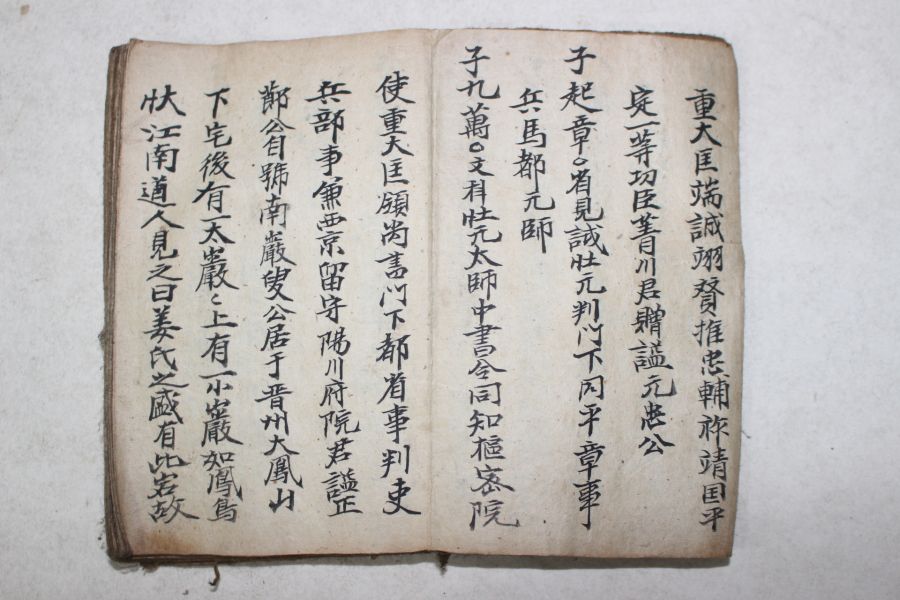 重大匡端誠翊賛推忠輔祚靖国平
定一等功臣菁川君贈諡元忠公
子起章○省見誠壯元判门下同平章事
兵馬都元帥
子九萬○文科壯元太師中書令同知樞密院
使重大匡領尚書门下都省事判吏
兵部事兼西京留守陽川府院君諡正
鄭公自號南巖叟公居于晋州大鳳山
下宅後有一太巖〻上有一小巖如鳳鳥
狀江南道人見之曰姜氏之盛有此岩故